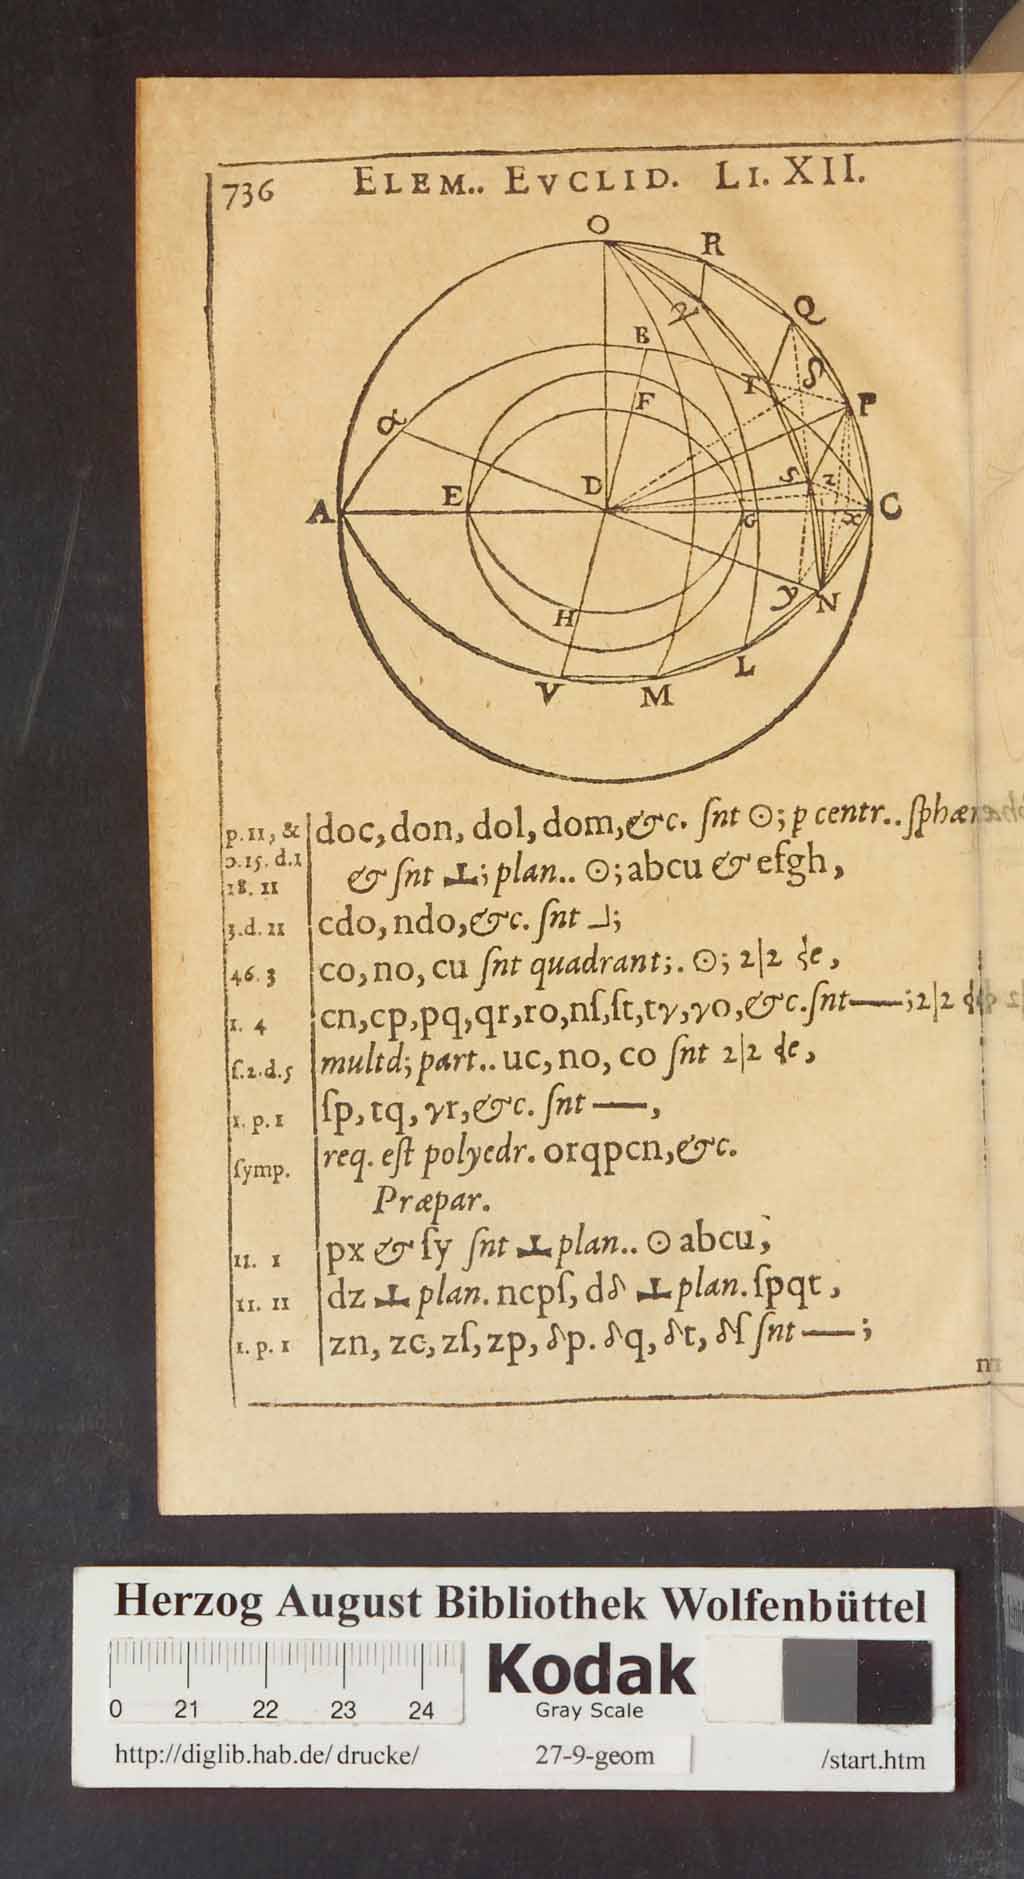 736 ELEM.. EVCLID. LI. XII.
O
R
Q
B
γ
T
δ
α
F
P
S
z
E
D
A
G
x
C
y
N
H
L
V
M
p. 11, & doc, don, dol, dom, &c. ſnt ☉; p centr.. ſphær
ɔ.15. d.1 & ſnt ⊥; plan.. ☉; abcu & efgh,
18. 11
3.d. 11 cdo, ndo, &c. ſnt ┘;
46. 3 co, no, cu ſnt quadrant;. ☉; 2|2
1. 4 cn, cp, pq, qr, ro, nſ, ſt, tγ, γo, &c. ſnt —; 2|2
ſ.2.d.5 multd; part.. uc, no, co ſnt 2|2
1. p. 1 ſp, tq, γr, &c. ſnt —,
ſymp. req. eſt polyedr. orqpcn, &c.
Præpar.
11. 1 px & ſy ſnt ⊥ plan.. ☉ abcu,
11. 11 dz ⊥ plan. ncpſ, dδ ⊥ plan. ſpqt,
1. p. 1 zn, zc, zſ, zp, δp. δq, δt, δſ ſnt —;
Herzog August Bibliothek Wolfenbüttel
0 21 22 23 24
Kodak
Gray Scale
http://diglib.hab.de/drucke/ 27-9-geom /start.htm